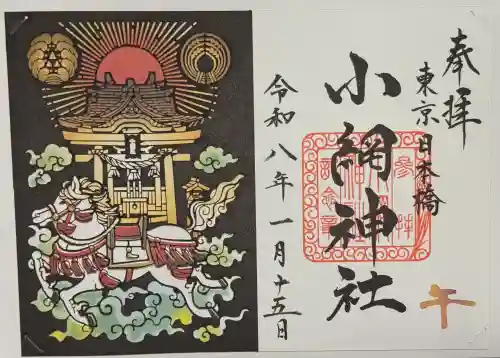 奉拝
東京 日本橋
小網神社
令和八年一月十五日
午